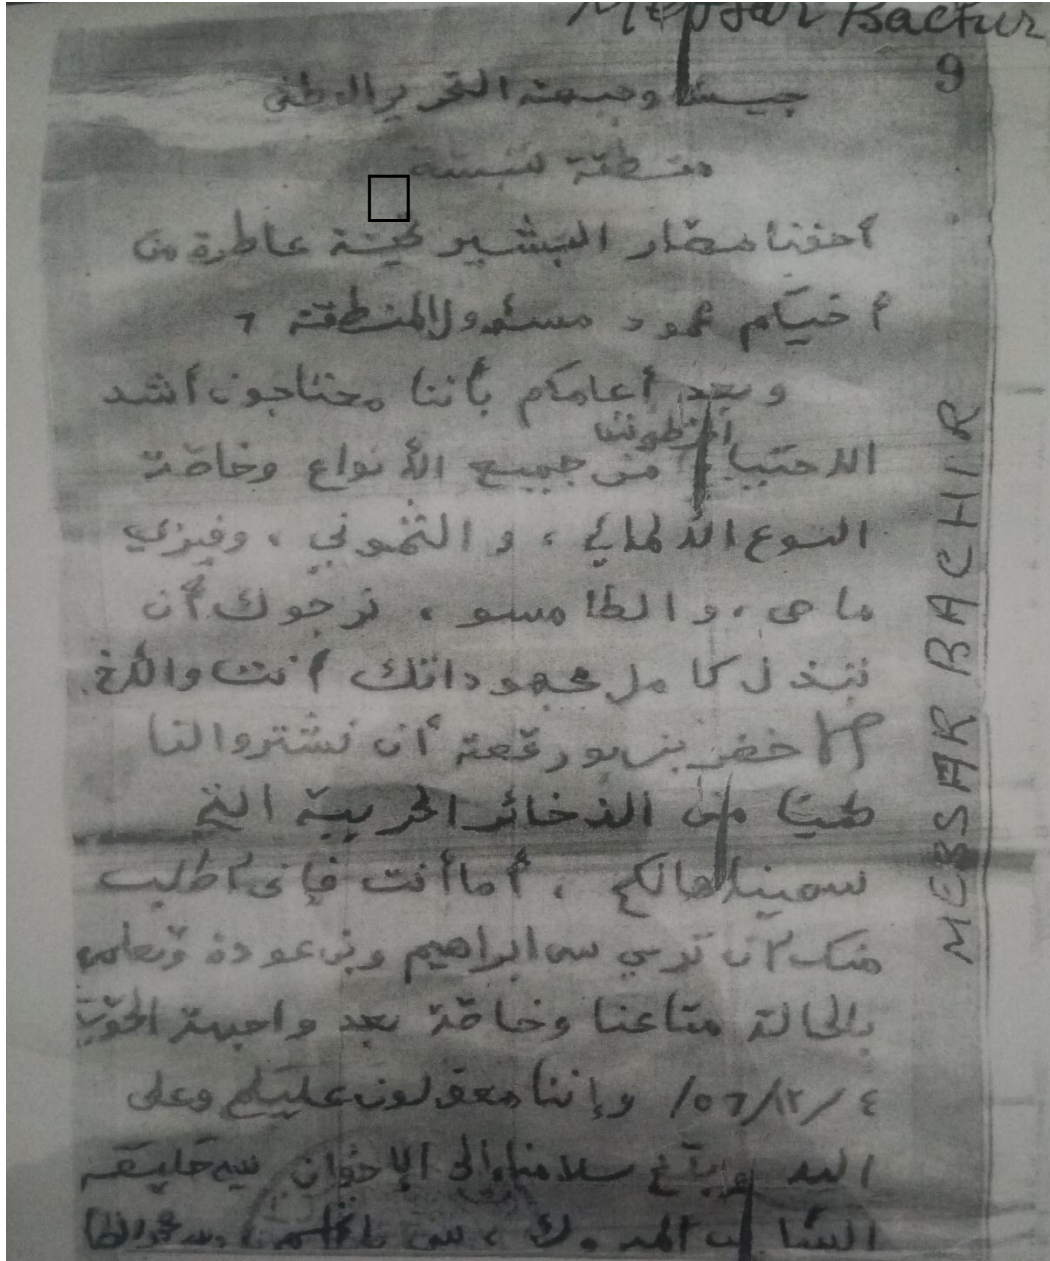 Messar Bachir
9
جيش وجبهة التحرير الوطني
منطقة تبسة
أخونا مصار البشير تحية عاطرة من
أخيكم محمود مسئول المنطقة ٦
وبعد أعلمكم بأننا محتاجون أشد
الاحتياج من جميع الأنواع وخاصة
النوع الألماني ، و الثموني ، وفيزي
ماص ، و الطامسو ، نرجوك أن
تبذل كامل مجهوداتك أنت والأخ
خضر بن بورقعة أن تشتروا لنا
من الذخائر الحربية التي
سميناها لكم ، أما أنت فإني أطلب
منك أن ترسي سي ابراهيم وبن عودة وتعلمي
بالحالة متاعنا وخاصة بعد واجهة
٤ /١٢/٥٦/ وإننا معولون عليكم وعلى
الله وبلغ سلامنا إلى الإخوان سي خليفة
الشايب ، سي
MESSAR BACHIR